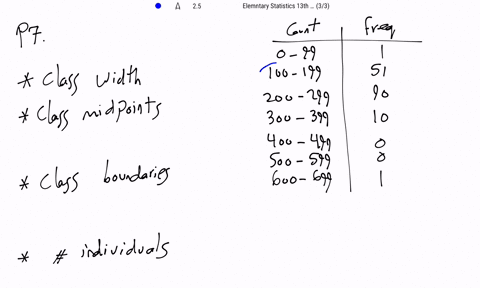 2.5 Elemntary Statistics 13th ... (3/3)
P7.
* Class width
* Class midpoints
* Class boundaries
* # individuals
Count Freq
0 - 99 1
100 - 199 51
200 - 299 90
300 - 399 10
400 - 499 0
500 - 599 0
600 - 699 1